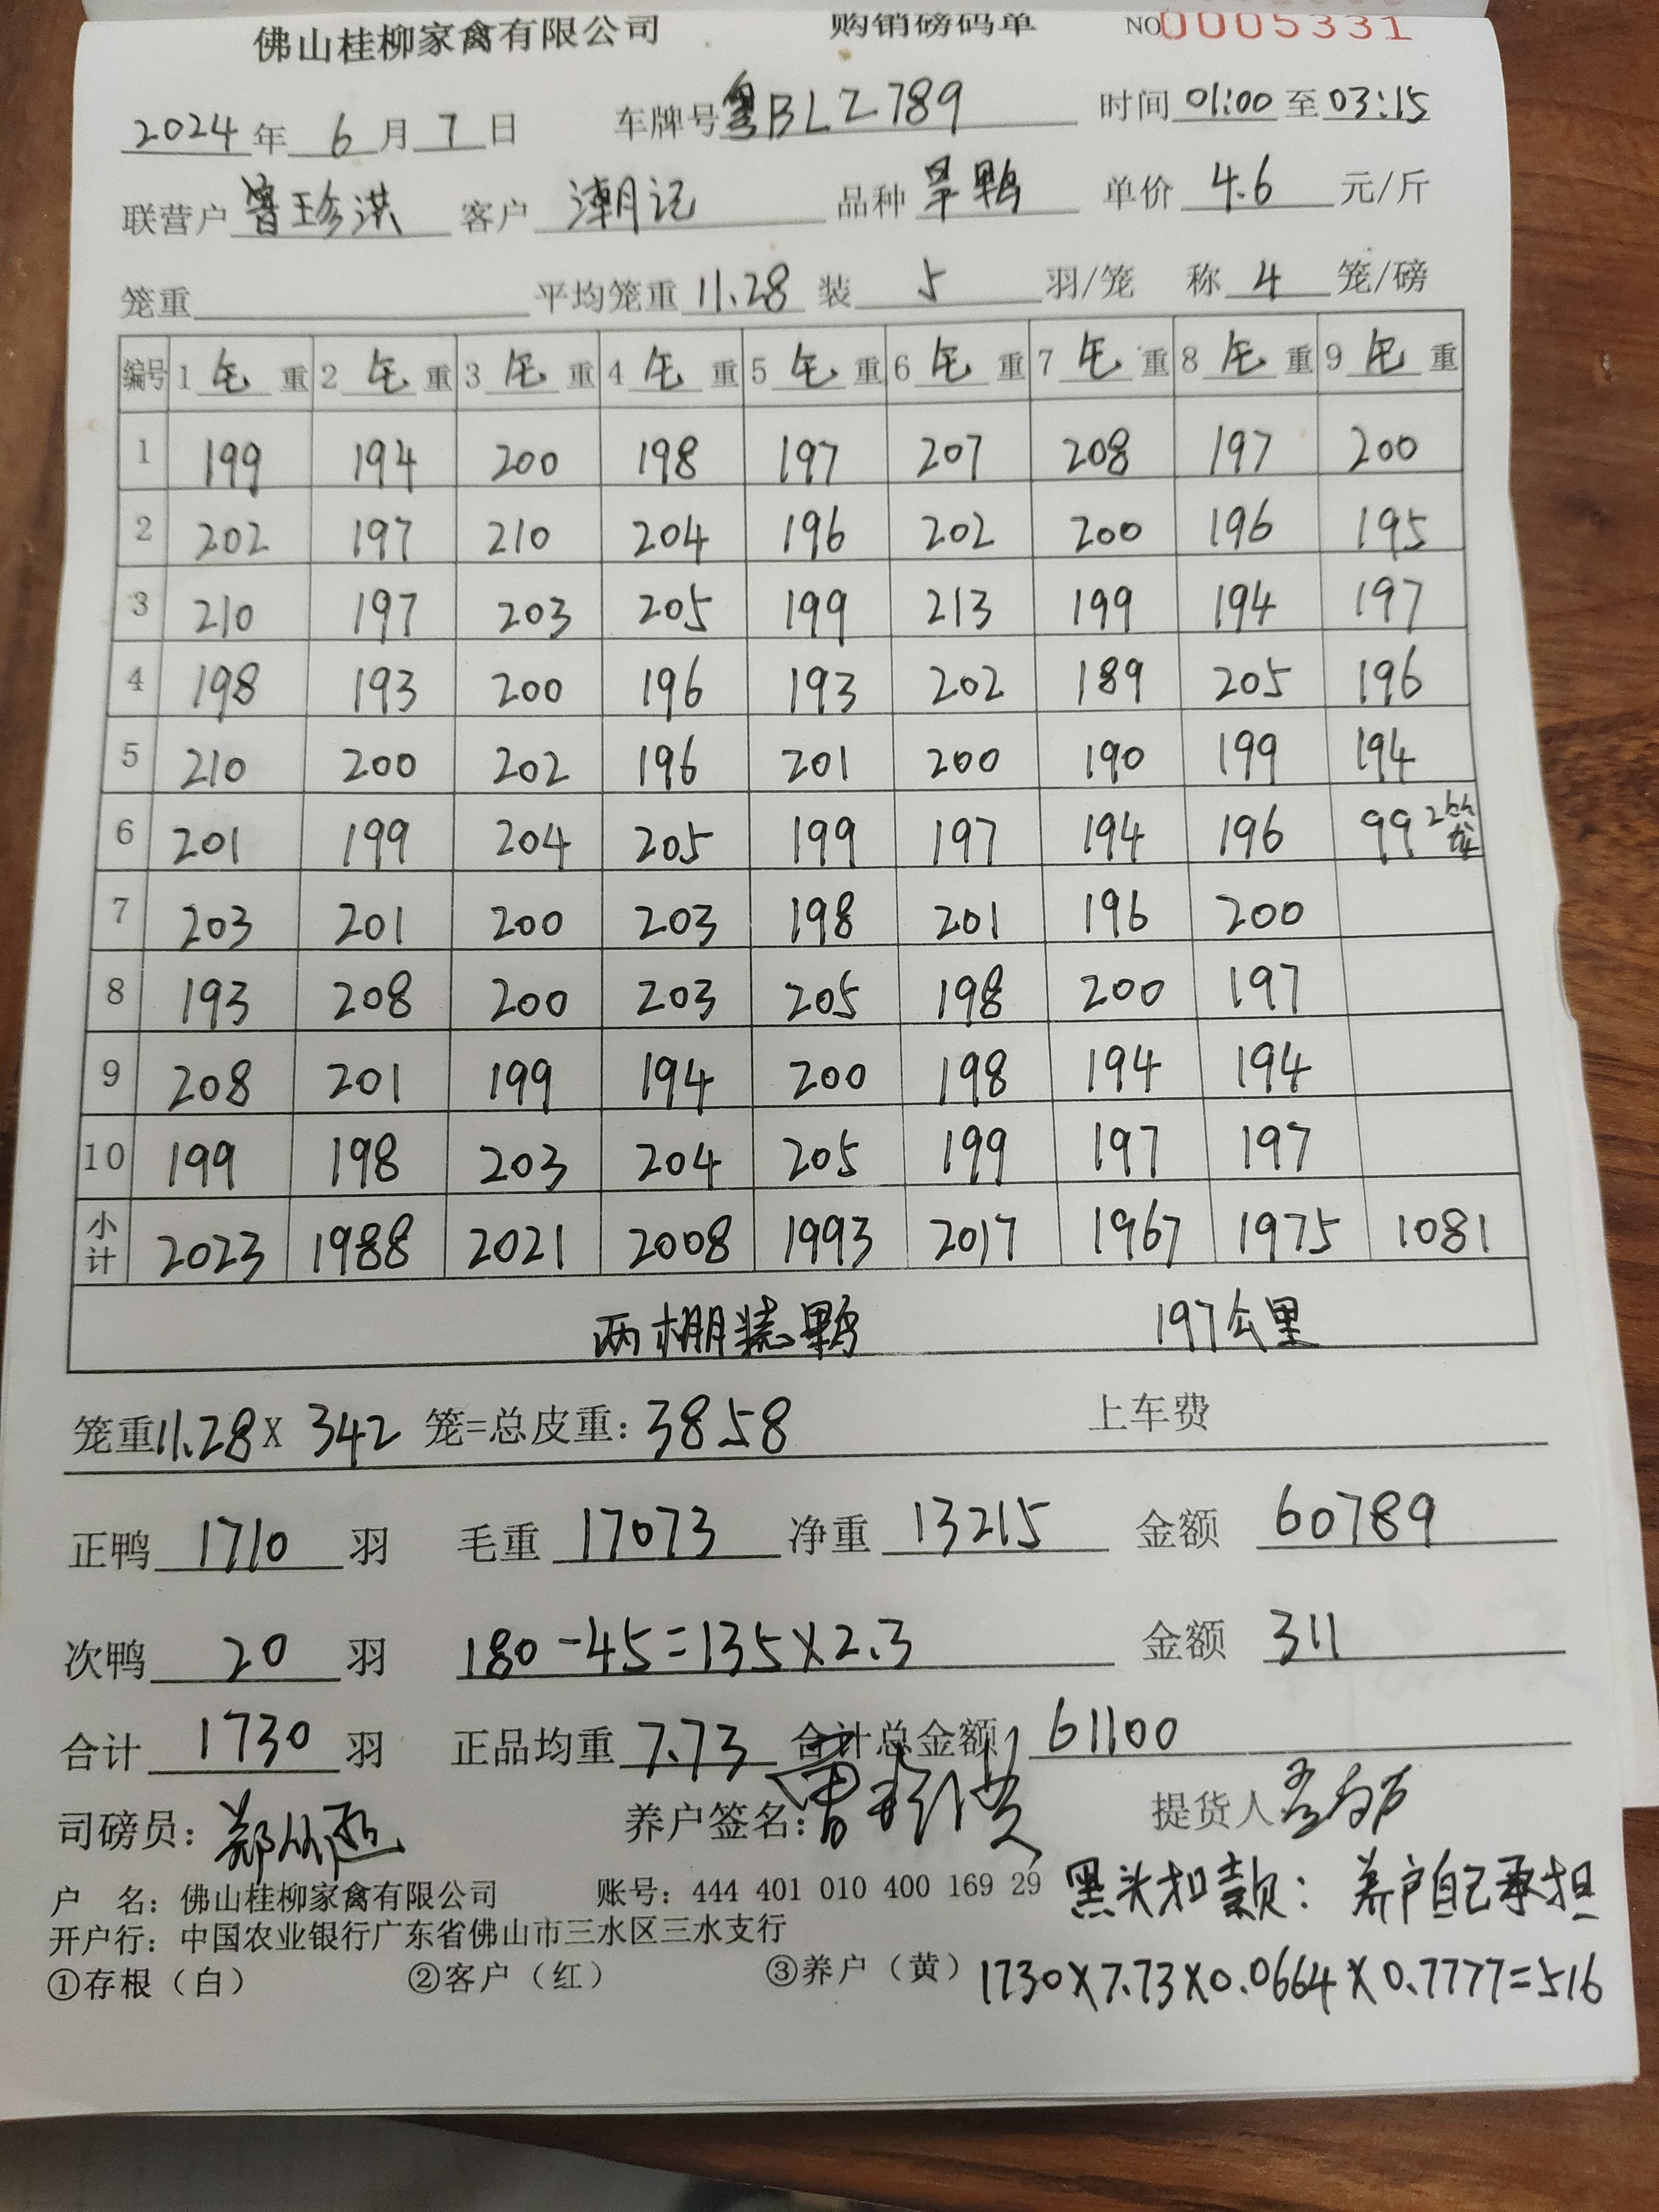 佛山桂柳家禽有限公司 购销磅码单 NO 0005331
2024年 6月 7日 车牌号 粤BLZ789 时间 01:00 至 03:15
联营户 曾珍洪 客户 潮记 品种 旱鸭 单价 4.6 元/斤
笼重 平均笼重 11.28 装 5 羽/笼 称 4 笼/磅
编号 1 毛 重 2 毛 重 3 毛 重 4 毛 重 5 毛 重 6 毛 重 7 毛 重 8 毛 重 9 毛 重
1 199 194 200 198 197 207 208 197 200
2 202 197 210 204 196 202 200 196 195
3 210 197 203 205 199 213 199 194 197
4 198 193 200 196 193 202 189 205 196
5 210 200 202 196 201 200 190 199 194
6 201 199 204 205 199 197 194 196 99 2
7 203 201 200 203 198 201 196 200
8 193 208 200 203 205 198 200 197
9 208 201 199 194 200 198 194 194
10 199 198 203 204 205 199 197 197
小计 2023 1988 2021 2008 1993 2017 1967 1975 1081
两棚装鸭 197公里
笼重 11.28 X 342 笼=总皮重: 3858 上车费
正鸭 1710 羽 毛重 17073 净重 13215 金额 60789
次鸭 20 羽 180-45=135×2.3 金额 311
合计 1730 羽 正品均重 7.73 合计总金额 61100
司磅员: 养户签名: 曾珍洪 提货人
黑头扣款: 养户自己承担
户 名: 佛山桂柳家禽有限公司 账号: 444 401 010 400 169 29
开户行: 中国农业银行广东省佛山市三水区三水支行
①存根（白） ②客户（红） ③养户（黄） 1730×7.73×0.0664×0.7777=516